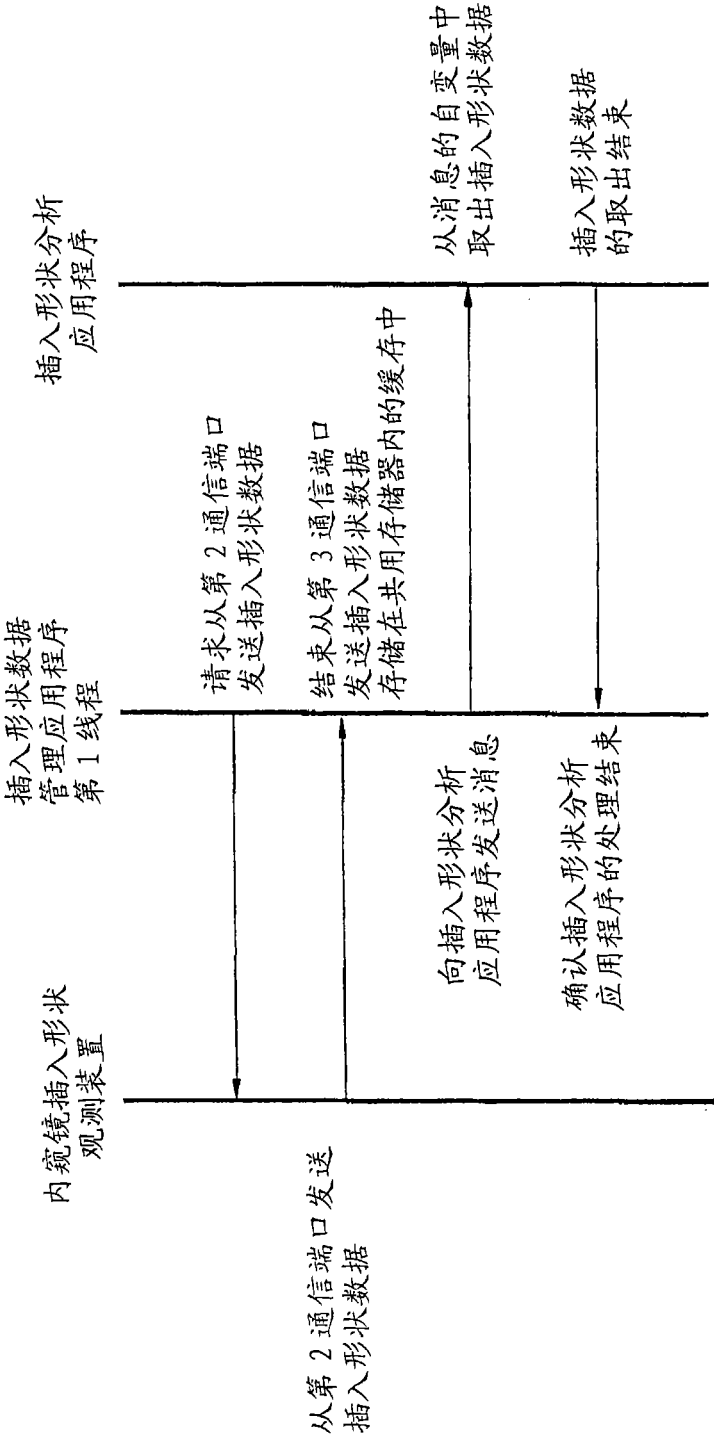 内窥镜插入形状
观测装置
插入形状数据
管理应用程序
第1线程
插入形状分析
应用程序
请求从第2通信端口
发送插入形状数据
从第2通信端口发送
插入形状数据
结束从第3通信端口
发送插入形状数据
存储在共用存储器内的缓存中
向插入形状分析
应用程序发送消息
从消息的自变量中
取出插入形状数据
确认插入形状分析
应用程序的处理结束
插入形状数据
的取出结束